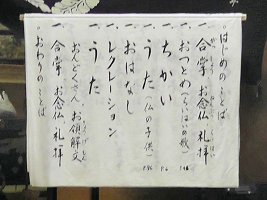 一、はじめのことば
一、合掌 お念仏 礼拝
一、おつとめ(らいはいの歌)
一、ちかい
一、うた(仏の子供)
一、おはなし
一、レクレーション
一、うた
一、おんどくさん お領解文
一、合掌 お念仏 礼拝
一、おわりのことば